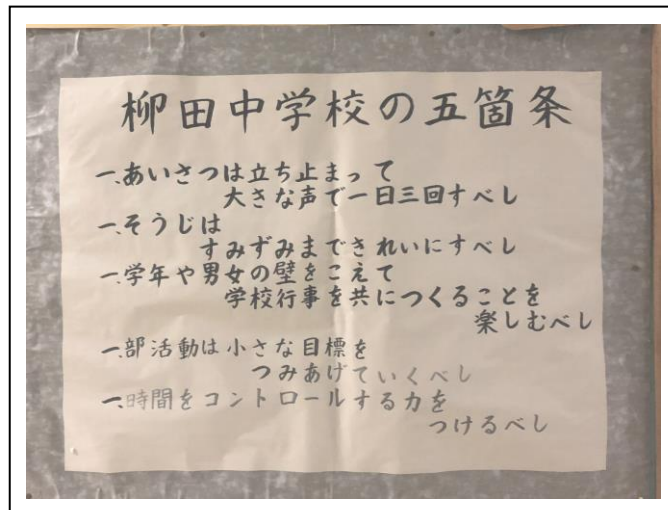 柳田中学校の五箇条
一、あいさつは立ち止まって
大きな声で一日三回すべし
一、そうじは
すみずみまできれいにすべし
一、学年や男女の壁をこえて
学校行事を共につくることを
楽しむべし
一、部活動は小さな目標を
つみあげていくべし
一、時間をコントロールする力を
つけるべし